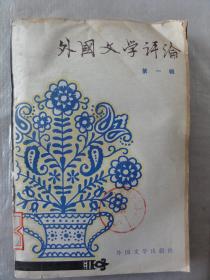 外國文学评论
第一辑
外国文学出版社